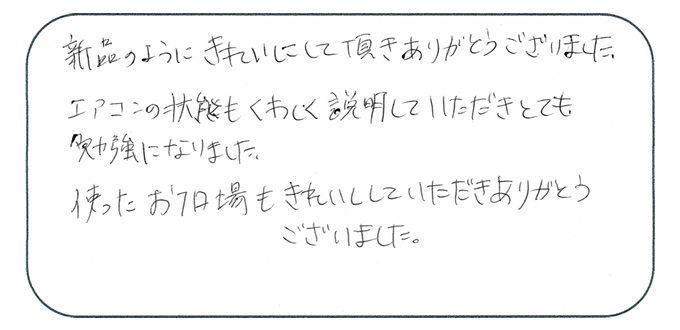 新品のように きれいにして頂きありがとうございました。
エアコンの状態もくわしく説明していただきとても
勉強になりました。
使ったお フロ場もきれいししていただきありがとう
ございました。